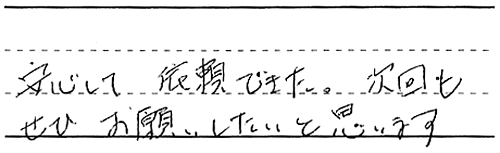 安心して 依頼できた。次回も
ぜひ お願いしたいと思います